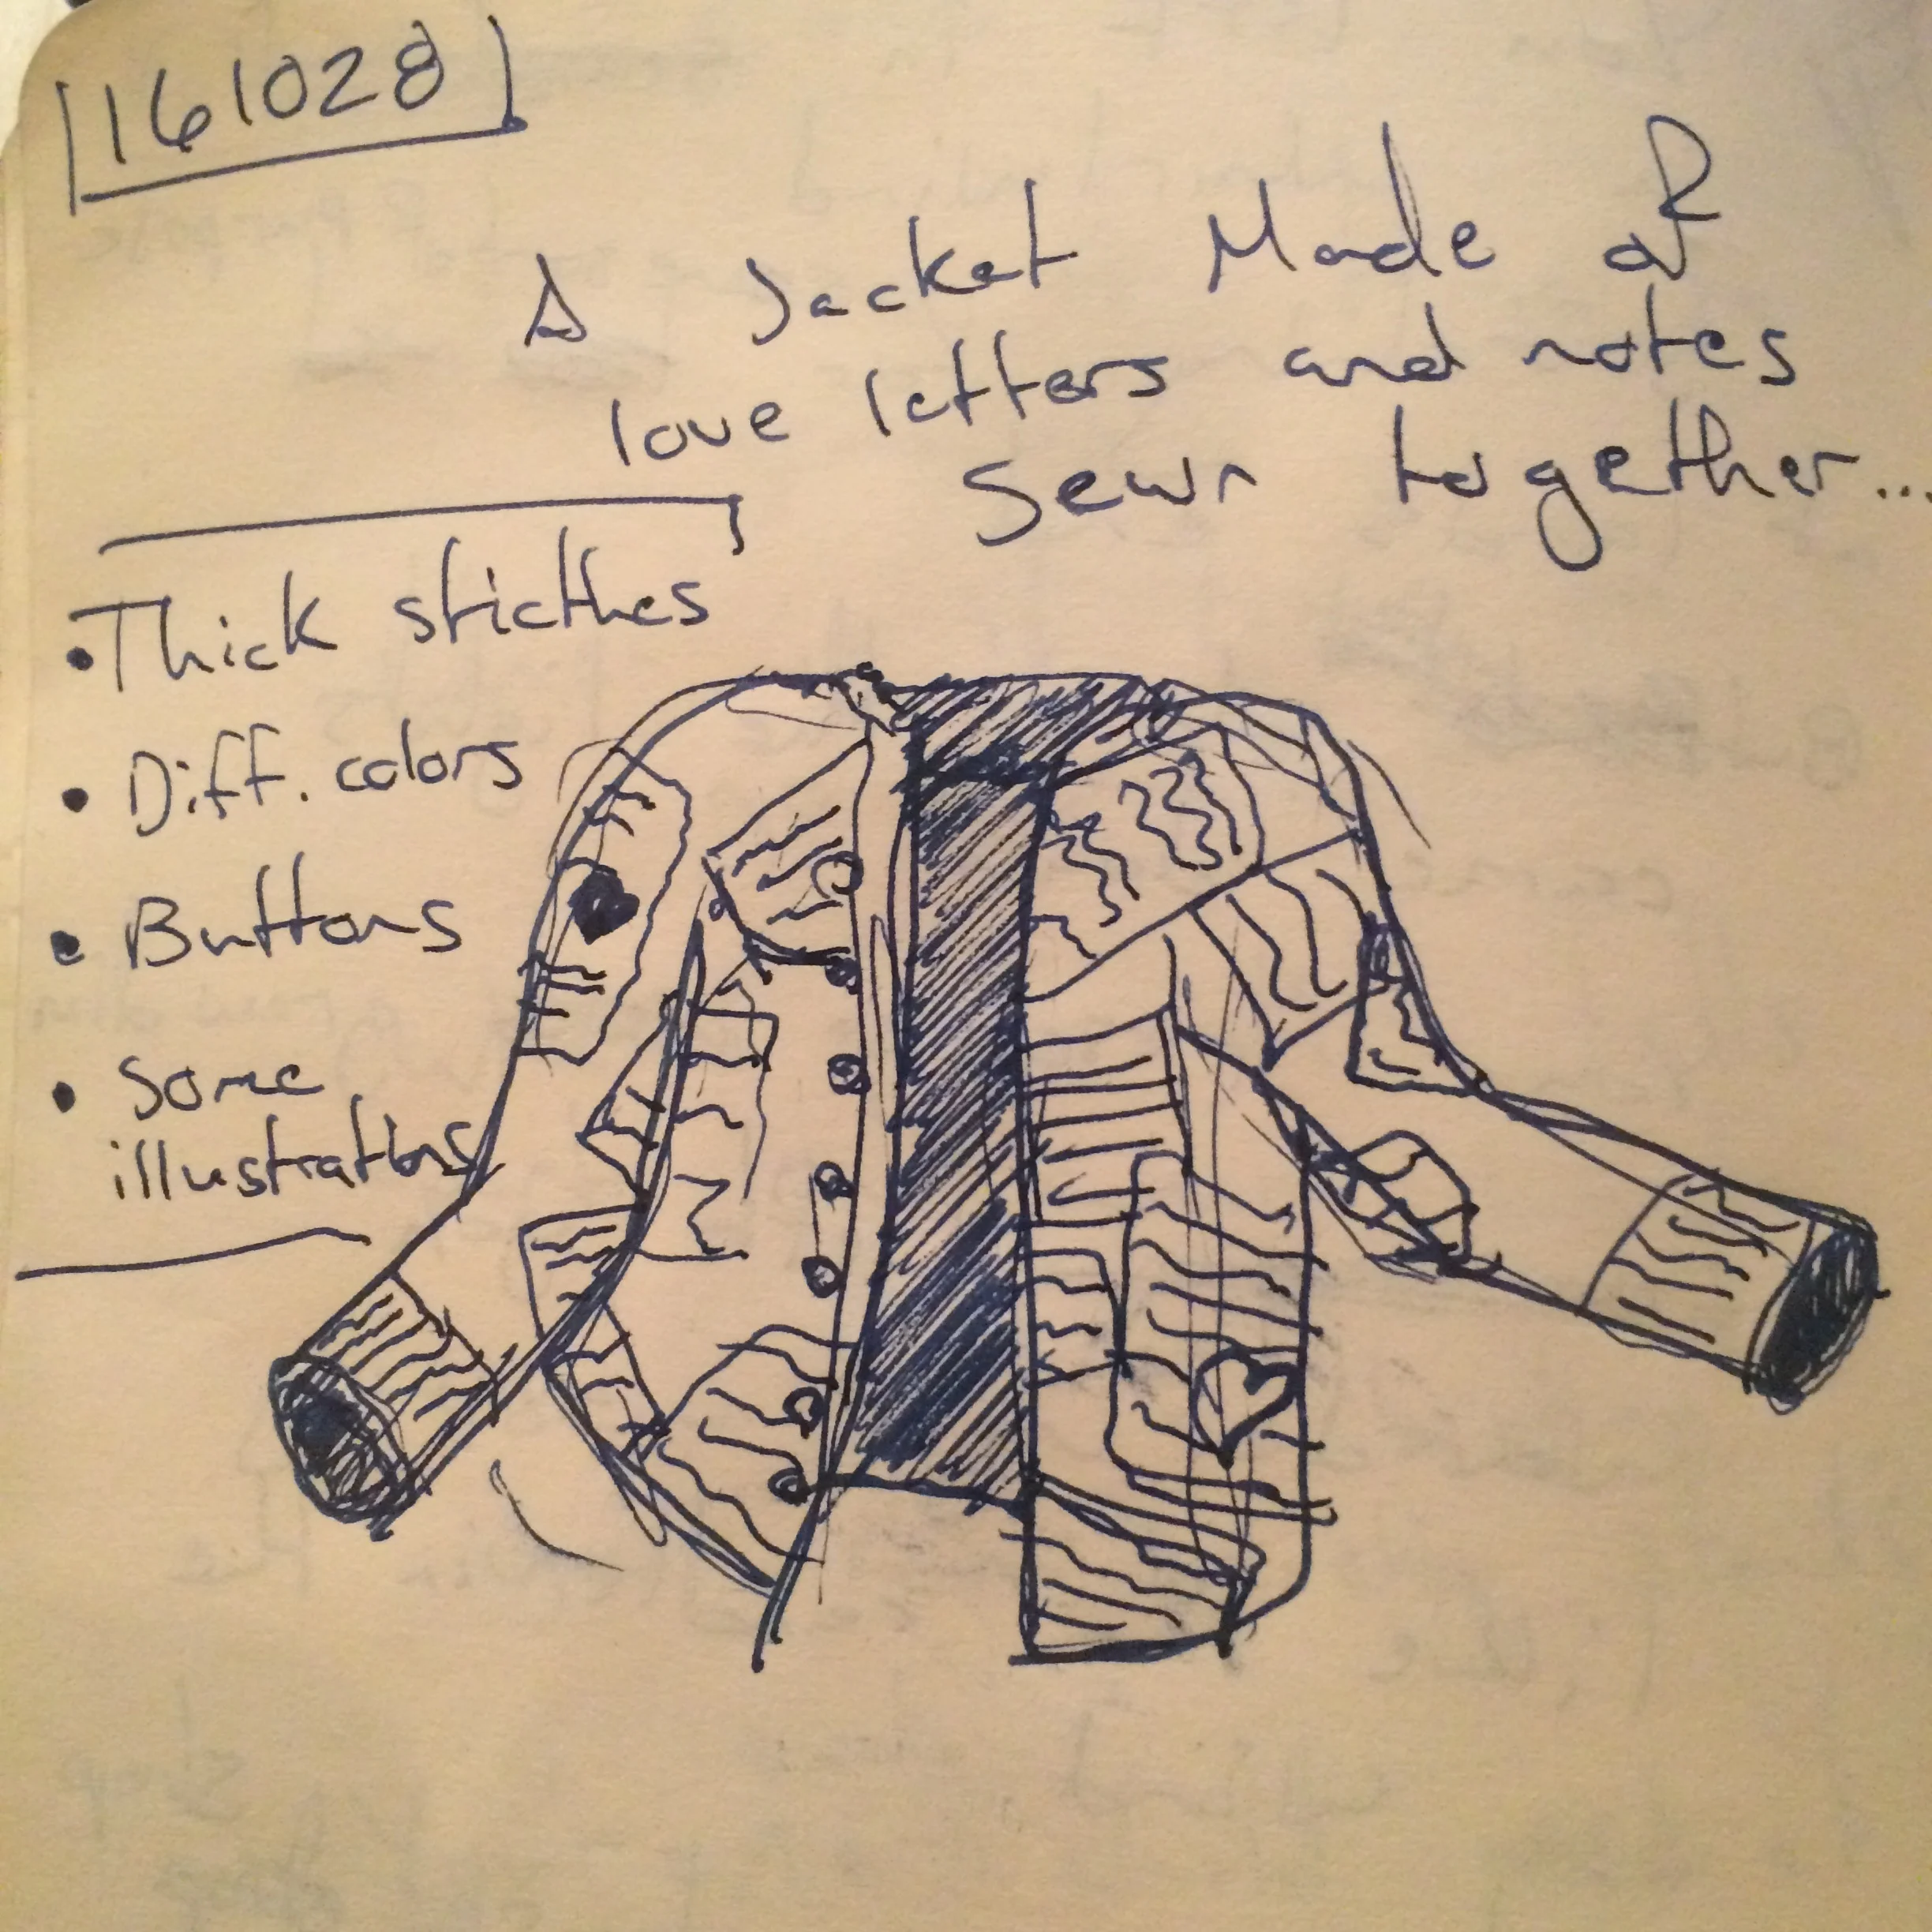 161028
A Jacket Made of
love letters and notes
sewn together...
• Thick sticthes
• Diff. colors
• Buttons
• Some
illustrations